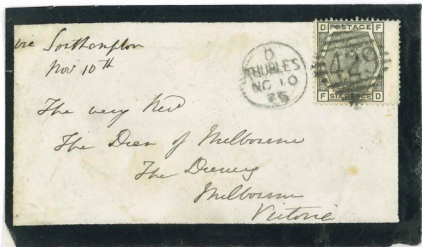 via Southampton
Nov 10th
D POSTAGE F
D
THURLES
NO 10
75
429
F SIX PENCE D
The very Revd
The Dean of Melbourne
The Deanery
Melbourne
Victoria